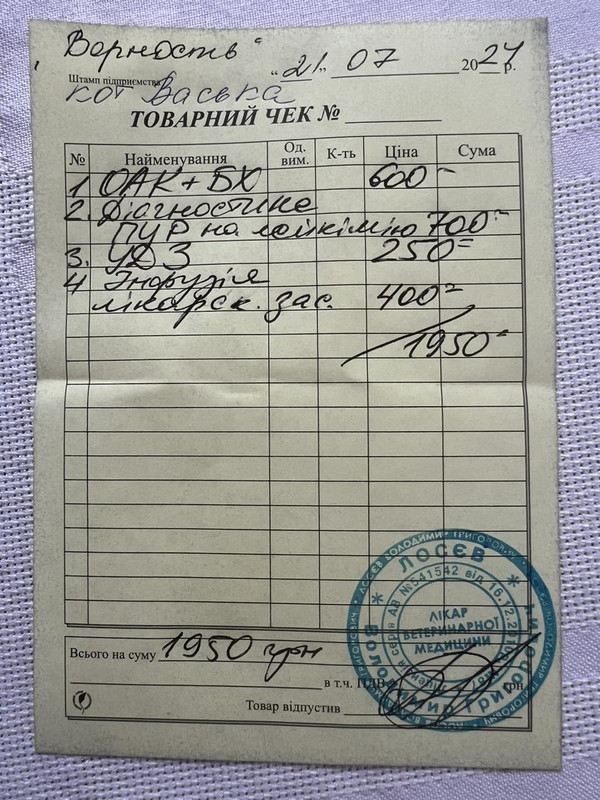 "Верность"
"21" 07 2024 р.
Штамп підприємства
кот Васька
ТОВАРНИЙ ЧЕК №
№ Найменування Од. вим. К-ть Ціна Сума
1 ОАК + БХ 600=
2. Діагностика
ПЦР на лейкімію 700=
3. УДЗ 250=
4 Інфузія
лікарск. зас. 400=
1950=
Всього на суму 1950 грн
в т.ч. ПДВ грн
Товар відпустив
ЛОСЄВ
Володимир Григорович
ЛІКАР
ВЕТЕРИНАРНОЇ
МЕДИЦИНИ
серія АВ №541542 від